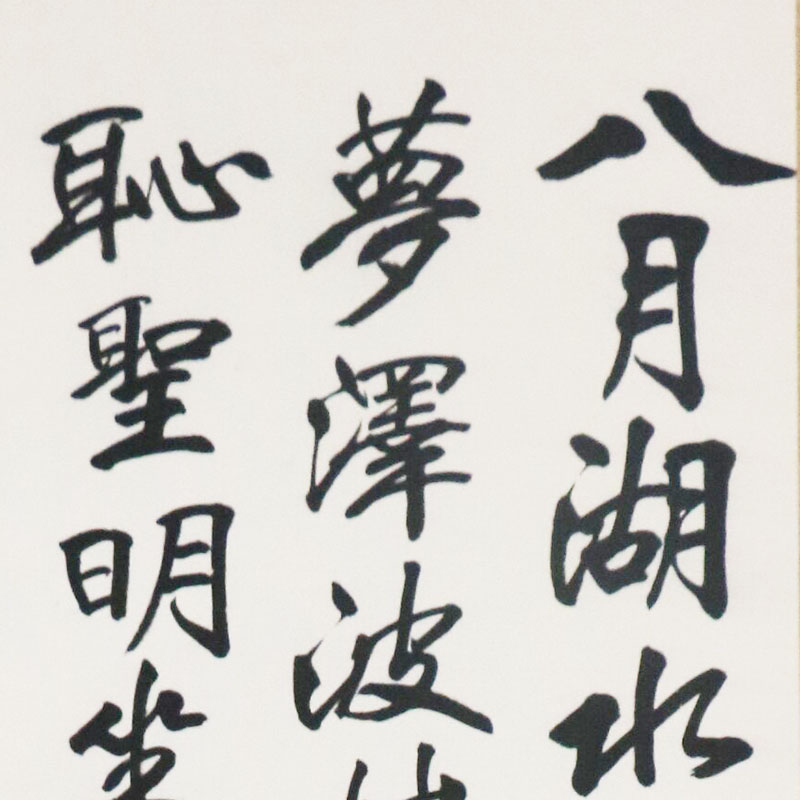 八月湖水
夢澤波
恥聖明坐